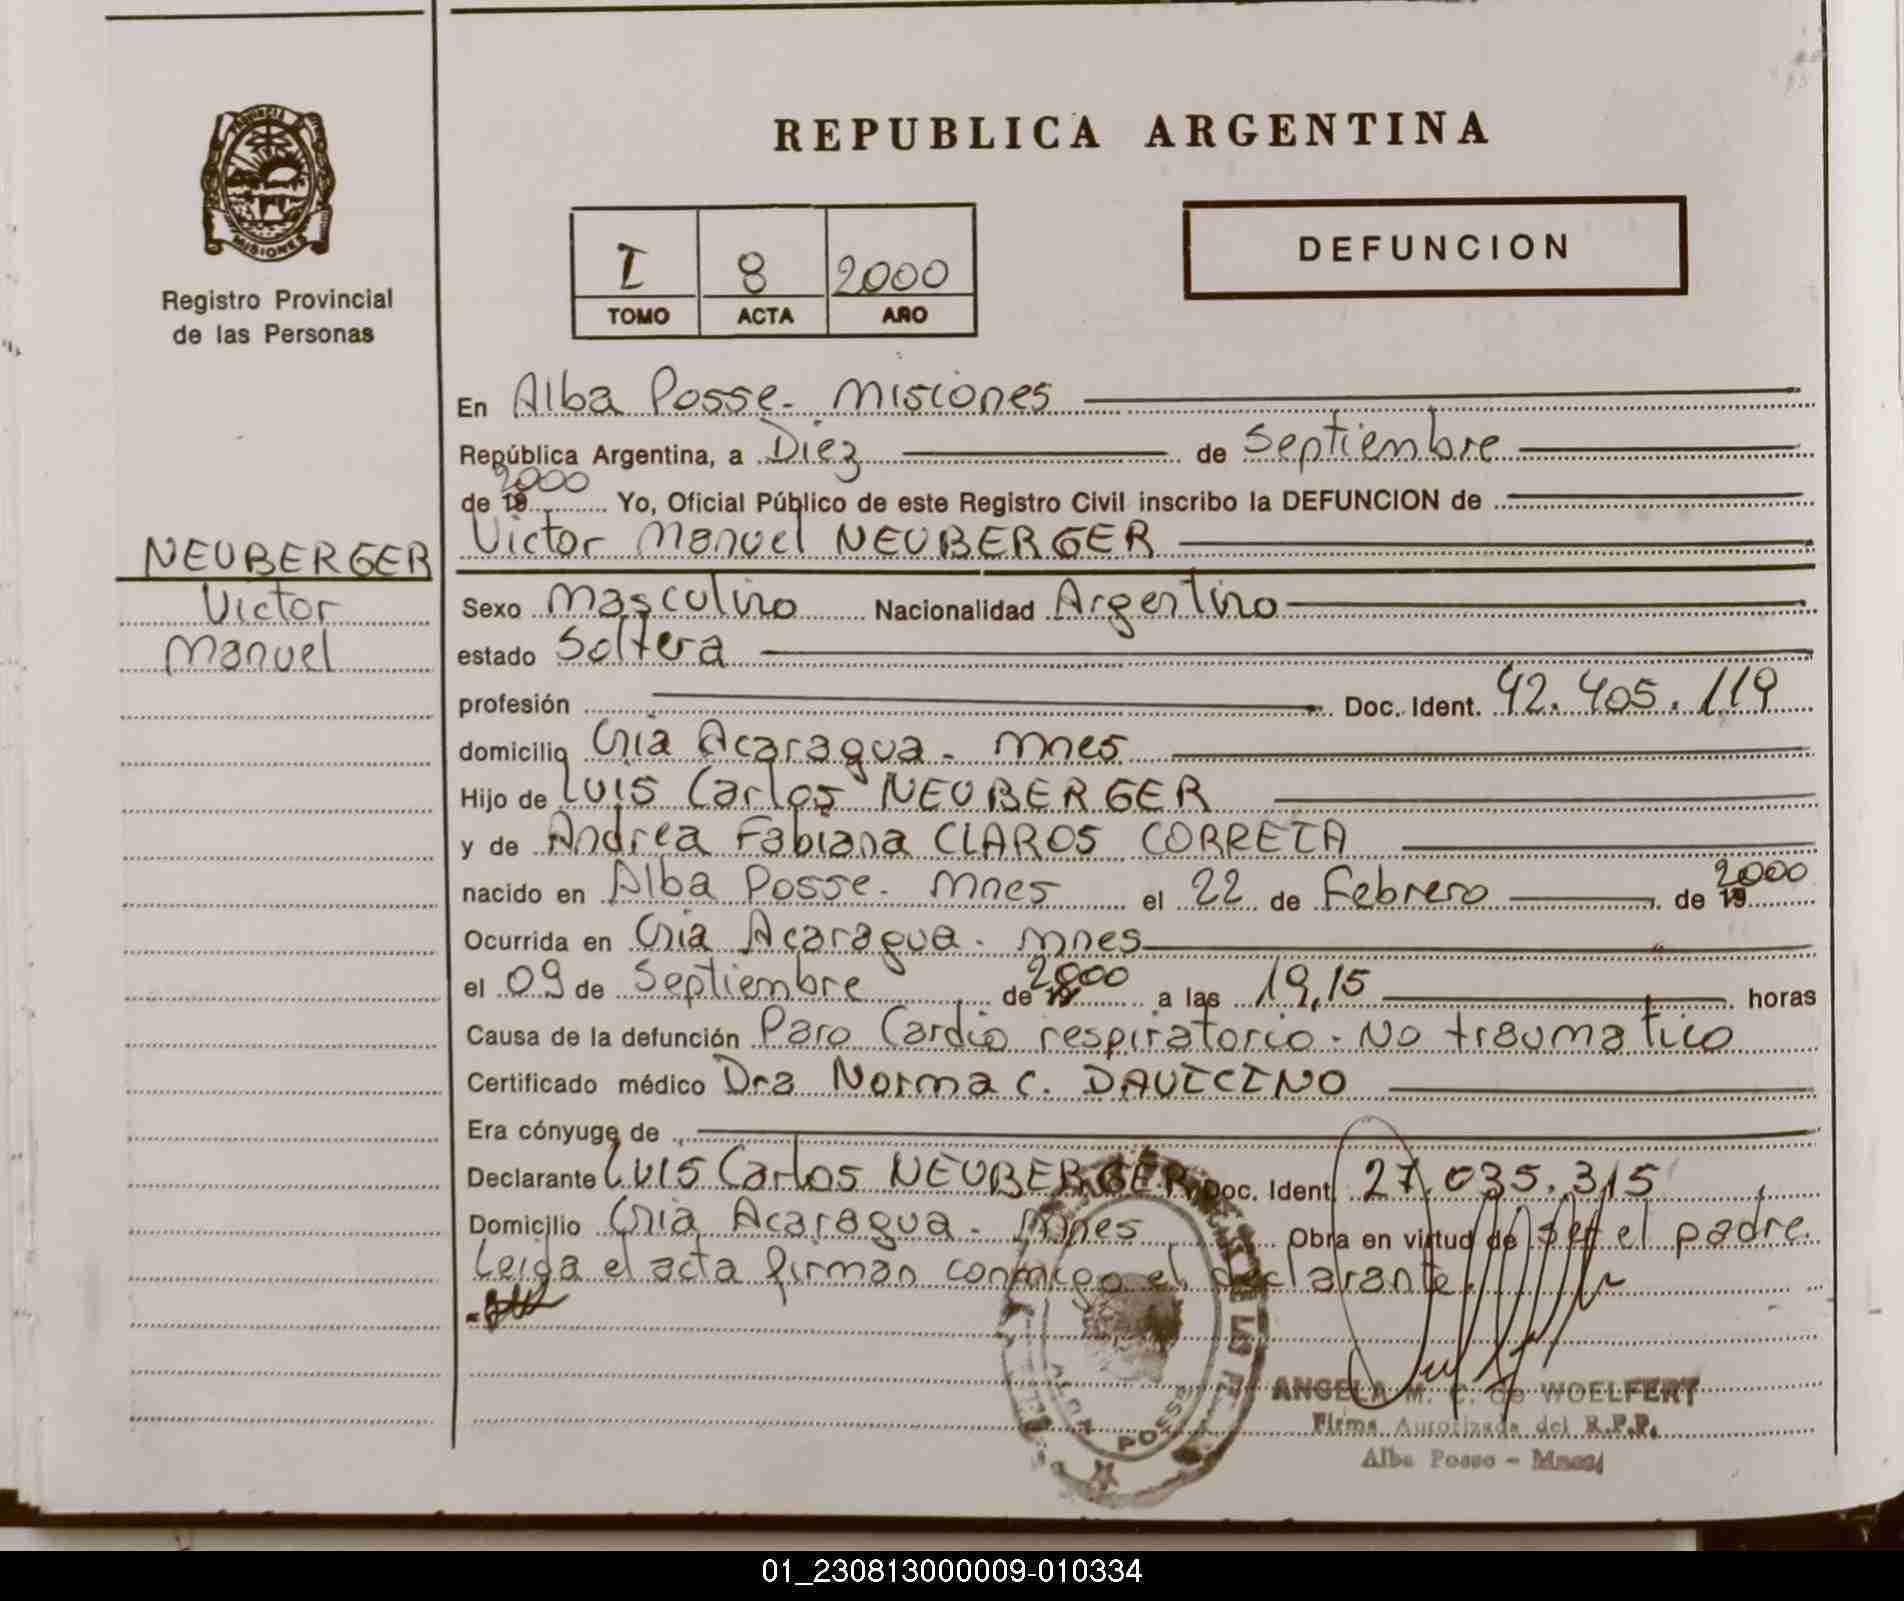 PROVINCIA
MISIONES
Registro Provincial
de las Personas
REPUBLICA ARGENTINA
I 8 2000
TOMO ACTA AÑO
DEFUNCION
En Alba Posse - Misiones
República Argentina, a Diez de Septiembre
de 19 2000 Yo, Oficial Público de este Registro Civil inscribo la DEFUNCION de
Victor Manuel NEUBERGER
NEUBERGER
Victor
Manuel
Sexo Masculino Nacionalidad Argentino
estado Soltera
profesión Doc. Ident. 42.405.119
domicilio Cnia Acaragua - Mnes
Hijo de Luis Carlos NEUBERGER
y de Andrea Fabiana CLAROS CORREIA
nacido en Alba Posse - Mnes el 22 de Febrero de 19 2000
Ocurrida en Cnia Acaragua - Mnes
el 09 de Septiembre de 19 2000 a las 19,15 horas
Causa de la defunción Paro Cardio respiratorio - No traumatico
Certificado médico Dra Norma C. DAVICINO
Era cónyuge de
Declarante Luis Carlos NEUBERGER Doc. Ident. 27.035.315
Domicilio Cnia Acaragua - Mnes Obra en virtud de ser el padre.
Leida el acta firman conmigo el declarante.
ALBA POSSE
ANGELA M. C. de WOELFERT
Firma Autorizada del R.P.P.
Alba Posse - Mnes
01_230813000009-010334